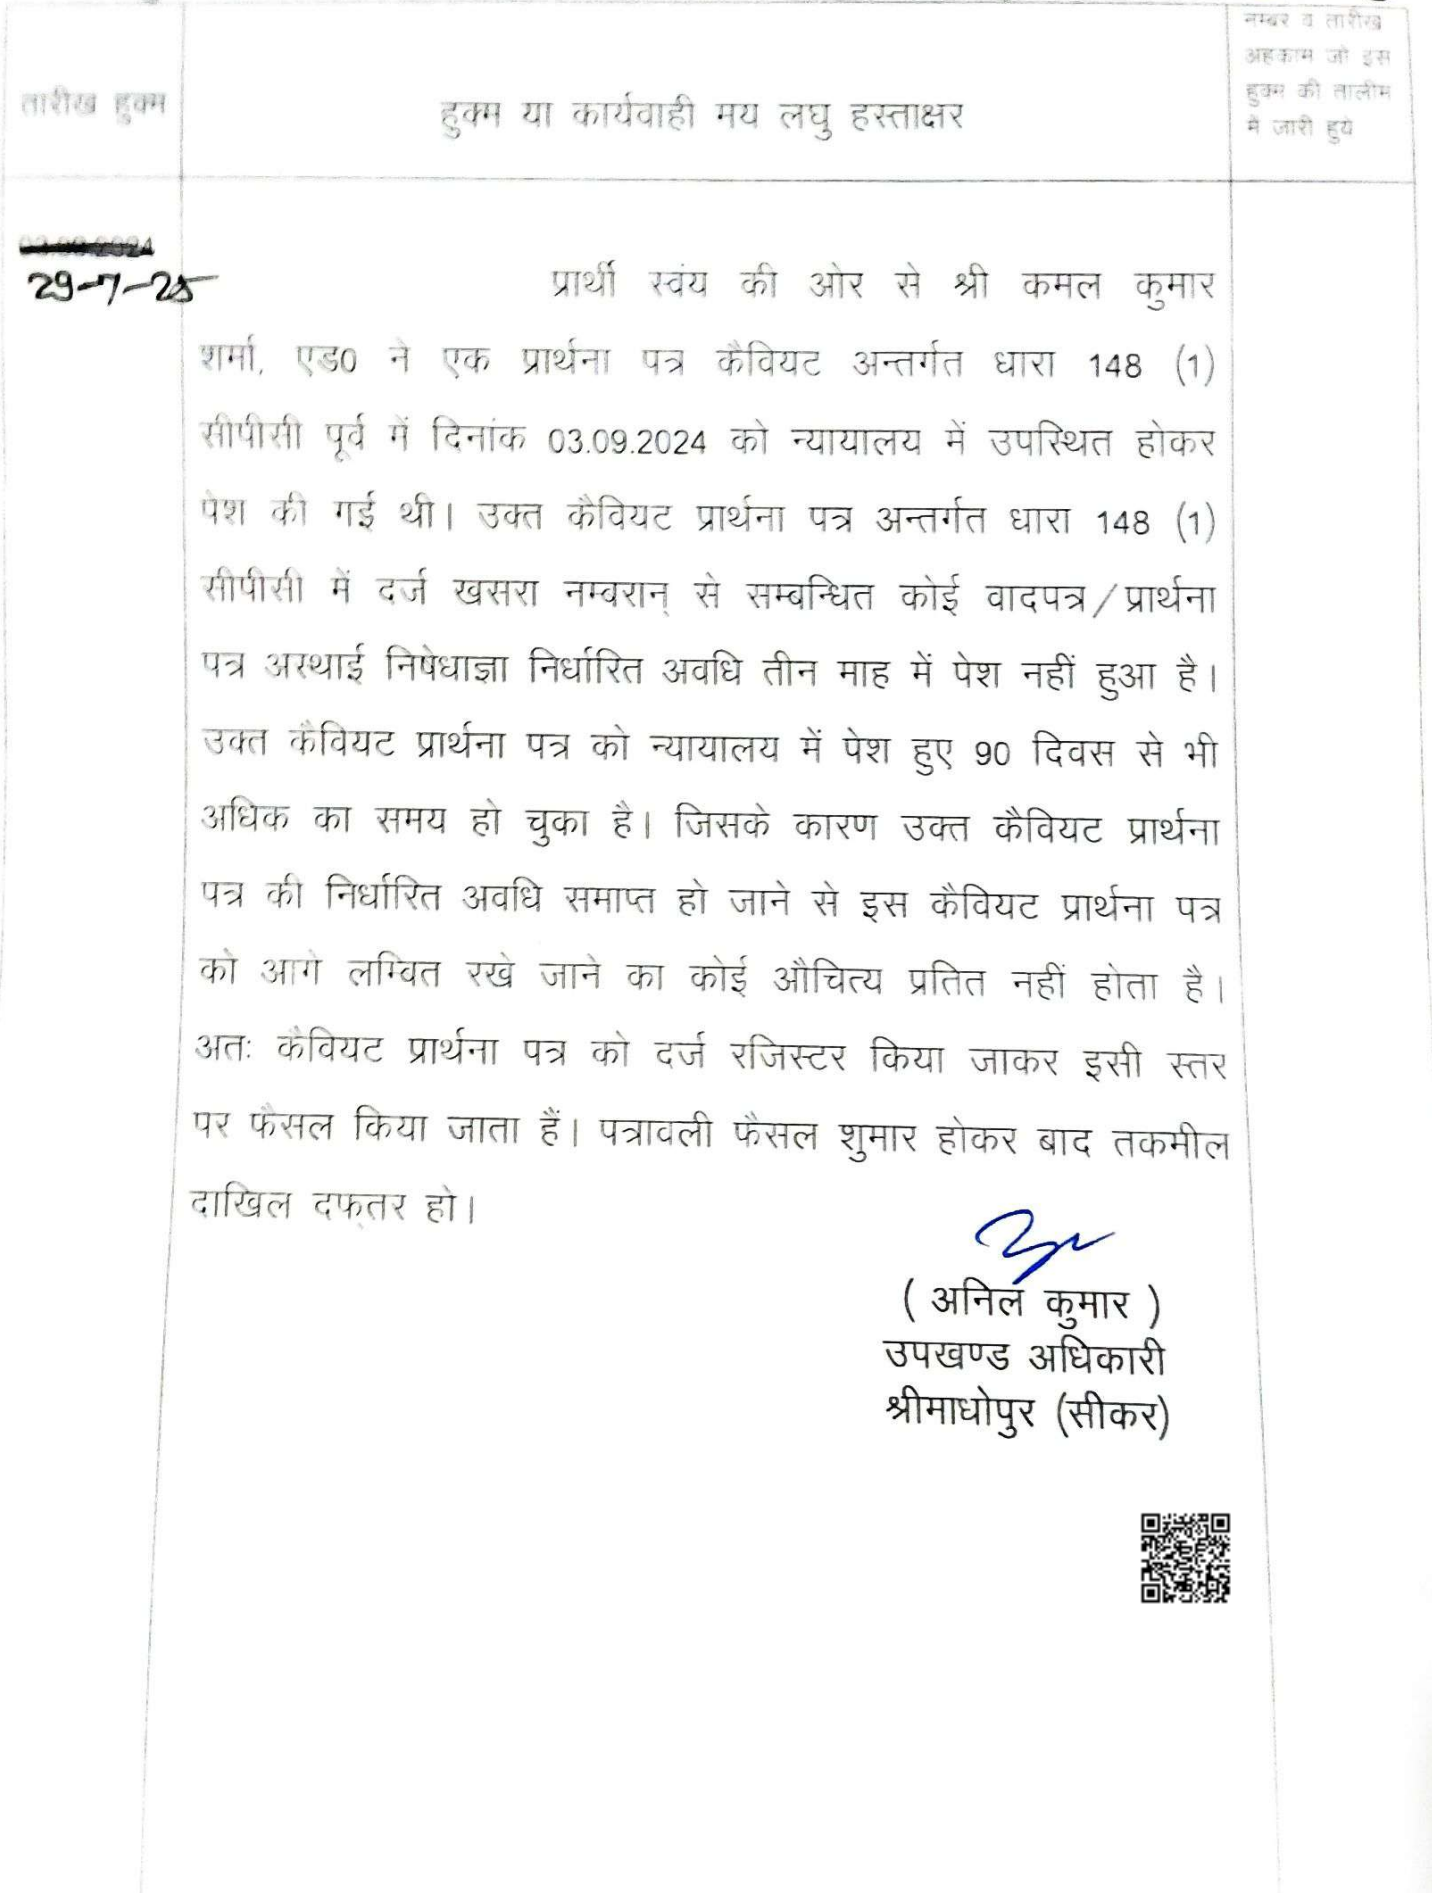 तारीख हुक्म
हुक्म या कार्यवाही मय लघु हस्ताक्षर
नम्बर व तारीख
अहकाम जो इस
हुक्म की तालीम
में जारी हुये
29-7-25
प्रार्थी स्वंय की ओर से श्री कमल कुमार
शर्मा, एड0 ने एक प्रार्थना पत्र कैवियट अन्तर्गत धारा 148 (1)
सीपीसी पूर्व में दिनांक 03.09.2024 को न्यायालय में उपस्थित होकर
पेश की गई थी। उक्त कैवियट प्रार्थना पत्र अन्तर्गत धारा 148 (1)
सीपीसी में दर्ज खसरा नम्बरान् से सम्बन्धित कोई वादपत्र/प्रार्थना
पत्र अस्थाई निषेधाज्ञा निर्धारित अवधि तीन माह में पेश नहीं हुआ है।
उक्त कैवियट प्रार्थना पत्र को न्यायालय में पेश हुए 90 दिवस से भी
अधिक का समय हो चुका है। जिसके कारण उक्त कैवियट प्रार्थना
पत्र की निर्धारित अवधि समाप्त हो जाने से इस कैवियट प्रार्थना पत्र
को आगे लम्बित रखे जाने का कोई औचित्य प्रतित नहीं होता है।
अतः कैवियट प्रार्थना पत्र को दर्ज रजिस्टर किया जाकर इसी स्तर
पर फैसल किया जाता हैं। पत्रावली फैसल शुमार होकर बाद तकमील
दाखिल दफ्तर हो।
( अनिल कुमार )
उपखण्ड अधिकारी
श्रीमाधोपुर (सीकर)